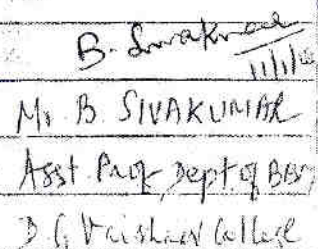 B. Sivakumar
11/11/
Mr B. SIVAKUMAR
Asst. Prof, Dept of BBM
D G Vaishnav College